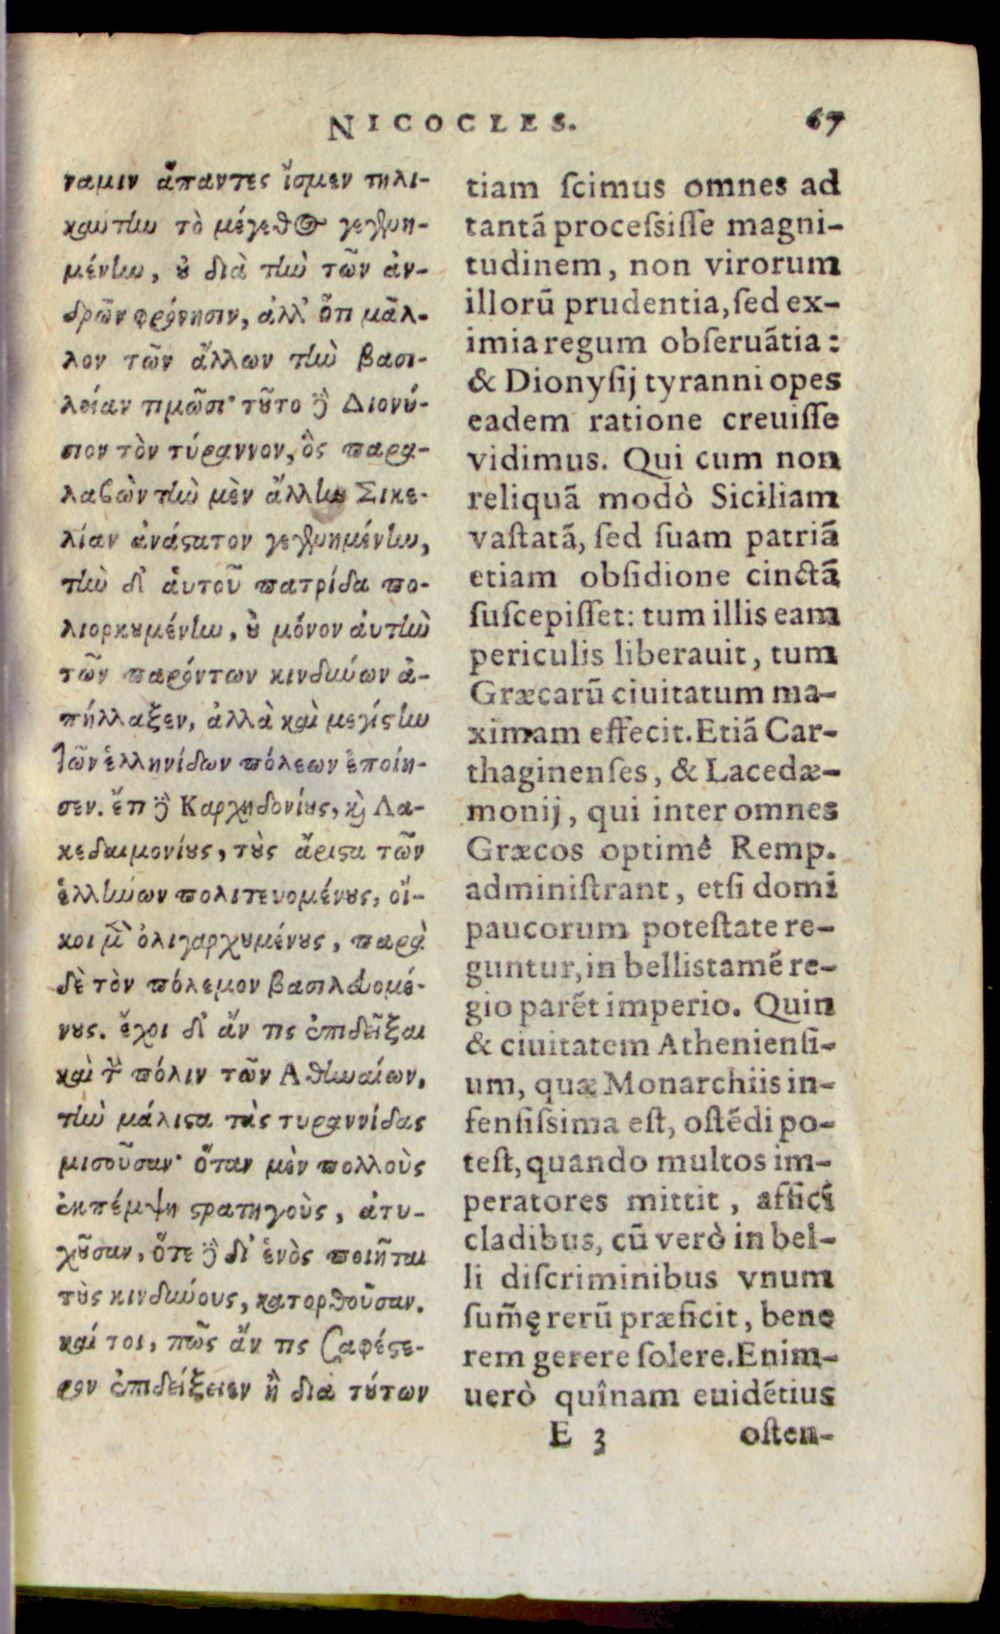 NICOCLES. 67
ναμιν ἅπαντες ἴσμεν τηλι-
καύτην τὸ μέγεθος γεγενη-
μένην, οὐ διὰ τὴν τῶν ἀν-
δρῶν φρόνησιν, ἀλλ' ὅτι μᾶλ-
λον τῶν ἄλλων τὴν βασι-
λείαν τιμῶσι· τοῦτο δὲ Διονύ-
σιον τὸν τύραννον, ὃς παρα-
λαβὼν τὴν μὲν ἄλλην Σικε-
λίαν ἀνάστατον γεγενημένην,
τὴν δ' αὑτοῦ πατρίδα πο-
λιορκουμένην, οὐ μόνον αὐτὴν
τῶν παρόντων κινδύνων ἀ-
πήλλαξεν, ἀλλὰ καὶ μεγίστην
τῶν ἑλληνίδων πόλεων ἐποίη-
σεν. ἔτι δὲ Καρχηδονίους, καὶ Λα-
κεδαιμονίους, τοὺς ἄριστα τῶν
ἑλλήνων πολιτευομένους, οἴ-
κοι μὲν ὀλιγαρχουμένους, παρὰ
δὲ τὸν πόλεμον βασιλευομέ-
νους. ἔχοι δ' ἄν τις ἐπιδεῖξαι
καὶ τὴν πόλιν τῶν Ἀθηναίων,
τὴν μάλιστα τὰς τυραννίδας
μισοῦσαν· ὅταν μὲν πολλοὺς
ἐκπέμψῃ στρατηγοὺς, ἀτυ-
χοῦσαν, ὅτε δὲ δι' ἑνὸς ποιῆται
τοὺς κινδύνους, κατορθοῦσαν.
καί τοι, πῶς ἄν τις σαφέστε-
ρον ἐπιδείξειεν ἢ διὰ τούτων
tiam scimus omnes ad
tantã processisse magni-
tudinem, non virorum
illorũ prudentia, sed ex-
imia regum obseruãtia:
& Dionysij tyranni opes
eadem ratione creuisse
vidimus. Qui cum non
reliquã modò Siciliam
vastatã, sed suam patriã
etiam obsidione cinctã
suscepisset: tum illis eam
periculis liberauit, tum
Græcarũ ciuitatum ma-
ximam effecit. Etiã Car-
thaginenses, & Lacedæ-
monij, qui inter omnes
Græcos optimè Remp.
administrant, etsi domi
paucorum potestate re-
guntur, in bellis tamẽ re-
gio parẽt imperio. Quin
& ciuitatem Atheniensi-
um, quæ Monarchiis in-
fensissima est, ostẽdi po-
test, quando multos im-
peratores mittit, affici
cladibus, cũ verò in bel-
li discriminibus vnum
sum̃ę rerũ præficit, bene
rem gerere solere. Enim-
uerò quînam euidẽtius
E 3 osten-